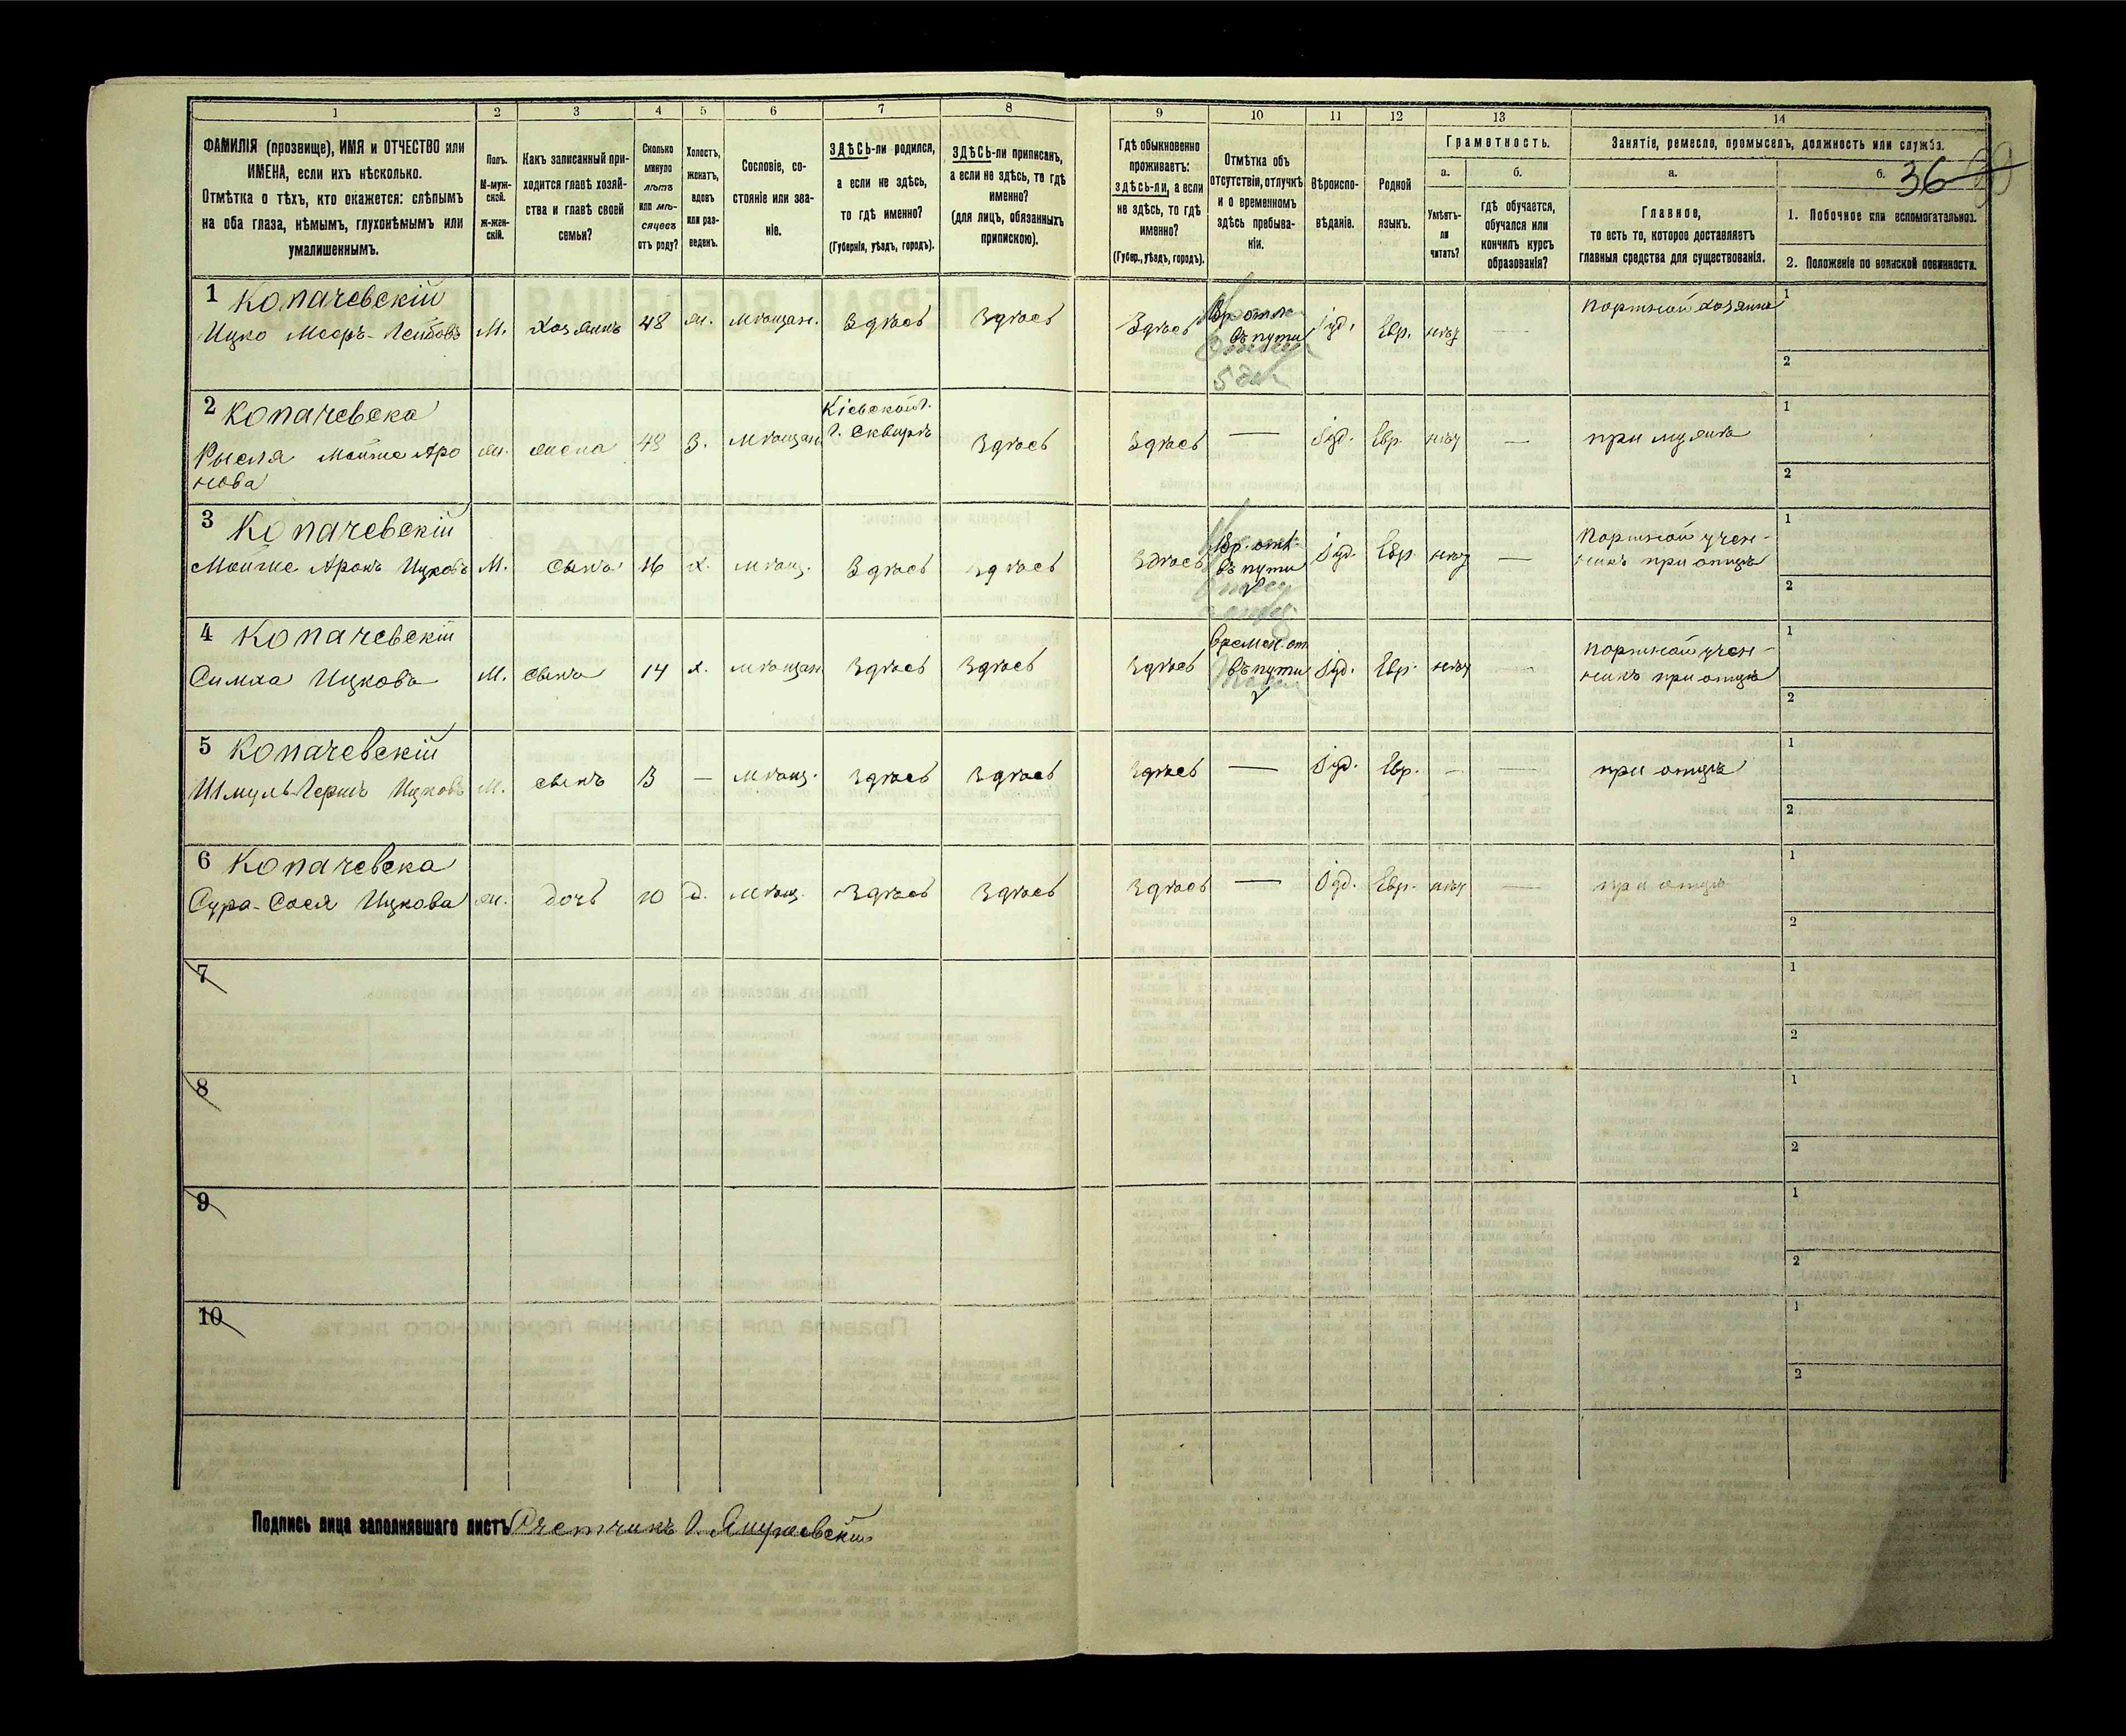 1 2 3 4 5 6 7 8 9 10 11 12 13 14
ФАМИЛІЯ (прозвище), ИМЯ и ОТЧЕСТВО или
ИМЕНА, если ихъ нѣсколько.
Отмѣтка о тѣхъ, кто окажется: слѣпымъ
на оба глаза, нѣмымъ, глухонѣмымъ или
умалишеннымъ.
Полъ.
М-муж-
ской.
Ж-жен-
скій.
Какъ записанный при-
ходится главѣ хозяй-
ства и главѣ своей
семьи?
Сколько
минуло
лѣтъ
или мѣ-
сяцевъ
отъ роду?
Холостъ,
женатъ,
вдовъ
или раз-
веденъ.
Сословіе, со-
стояніе или зва-
ніе.
ЗДѢСЬ-ли родился,
а если не здѣсь,
то гдѣ именно?
(Губернія, уѣздъ, городъ).
ЗДѢСЬ-ли приписанъ,
а если не здѣсь, то гдѣ
именно?
(для лицъ, обязанныхъ
припискою).
Гдѣ обыкновенно
проживаетъ:
здѣсь-ли, а если
не здѣсь, то гдѣ
именно?
(Губер., уѣздъ, городъ).
Отмѣтка объ
отсутствіи, отлучкѣ
и о временномъ
здѣсь пребыва-
ніи.
Вѣроиспо-
вѣданіе.
Родной
языкъ.
Грамотность.
а.
Умѣетъ-
ли
читать?
б.
гдѣ обучается,
обучался или
кончилъ курсъ
образованія?
Занятіе, ремесло, промыселъ, должность или служба.
а.
Главное,
то есть то, которое доставляетъ
главныя средства для существованія.
б. 36
1. Побочное или вспомогательное.
2. Положеніе по воинской повинности.
1 Копачевскій
Ицко Мееръ-Лейбовъ М. Хозяинъ 48 ж. Мѣщан. Здѣсь Здѣсь Здѣсь Вр. отл. въ пути Іуд. Евр. нѣтъ — Портной хозяинъ
1
2
2 Копачевска
Рысля Мойше Аро
нова ж. жена 48 З. Мѣщан. Кіевской г. г. Сквирѣ Здѣсь Здѣсь — Іуд. Евр. нѣтъ — при мужѣ
1
2
3 Копачевскій
Мойше Аронъ Ицковъ М. сынъ 16 х. мѣщ. Здѣсь Здѣсь Здѣсь Вр. отл. въ пути Іуд. Евр. нѣтъ — Портной учен-
никъ при отцѣ
1
2
4 Копачевскій
Симха Ицковъ М. сынъ 14 х. мѣщан. Здѣсь Здѣсь Здѣсь Времен. от. въ пути Іуд. Евр. нѣтъ — Портной учен-
никъ при отцѣ
1
2
5 Копачевскій
Шмуль Гершъ Ицковъ М. сынъ 3 — мѣщ. Здѣсь Здѣсь Здѣсь — Іуд. Евр. — — при отцѣ
1
2
6 Копачевска
Сура-Сося Ицкова ж. дочь 10 д. мѣщ. Здѣсь Здѣсь Здѣсь — Іуд. Евр. нѣтъ — при отцѣ
1
2
7
1
2
8
1
2
9
1
2
10
1
2
Подпись лица заполнявшаго листъ Счетчикъ